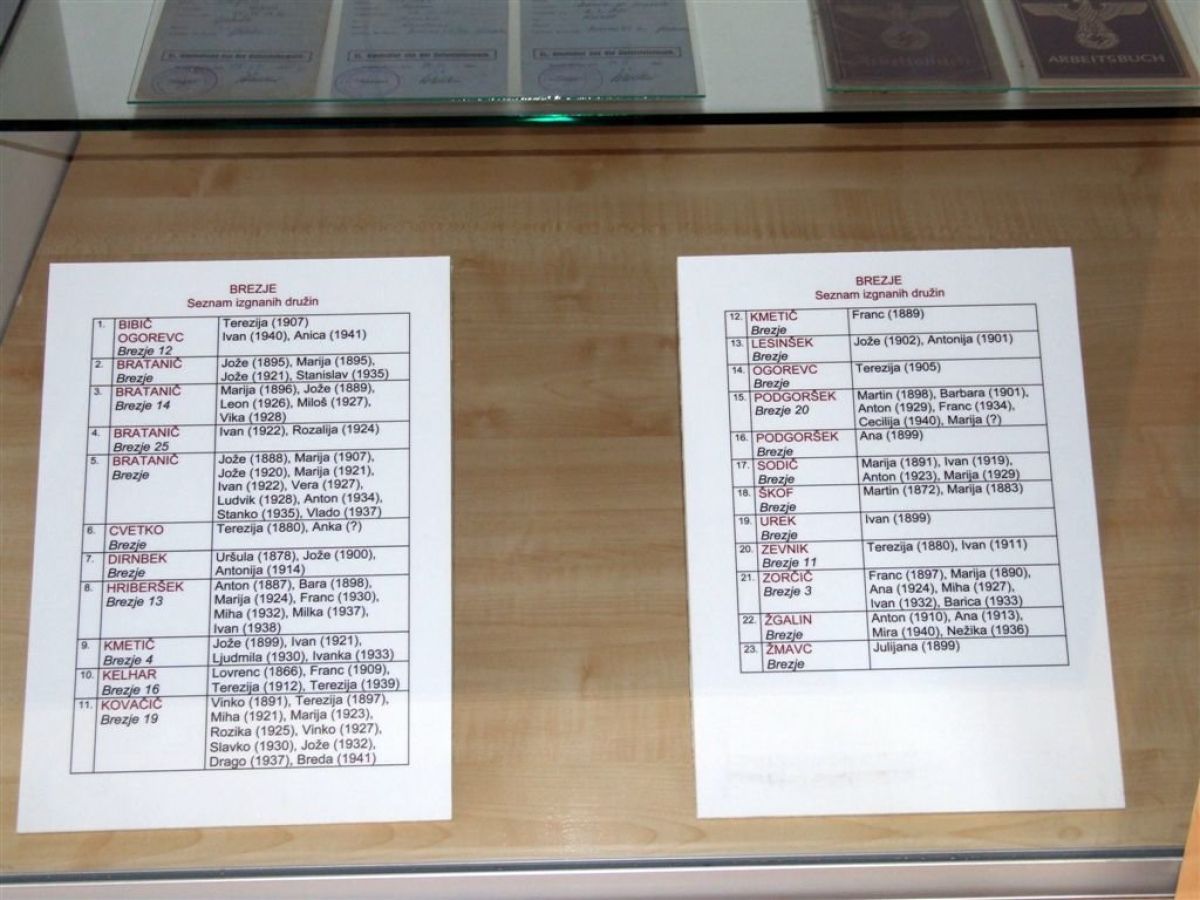 ARBEITSBUCH
BREZJE
Seznam izgnanih družin
1. BIBIČ Terezija (1907)
OGOREVC Ivan (1940), Anica (1941)
Brezje 12
2. BRATANIČ Jože (1895), Marija (1895),
Brezje Jože (1921), Stanislav (1935)
3. BRATANIČ Marija (1896), Jože (1889),
Brezje 14 Leon (1926), Miloš (1927),
Vika (1928)
4. BRATANIČ Ivan (1922), Rozalija (1924)
Brezje 25
5. BRATANIČ Jože (1888), Marija (1907),
Brezje Jože (1920), Marija (1921),
Ivan (1922), Vera (1927),
Ludvik (1928), Anton (1934),
Stanko (1935), Vlado (1937)
6. CVETKO Terezija (1880), Anka (?)
Brezje
7. DIRNBEK Uršula (1878), Jože (1900),
Brezje Antonija (1914)
8. HRIBERŠEK Anton (1887), Bara (1898),
Brezje 13 Marija (1924), Franc (1930),
Miha (1932), Milka (1937),
Ivan (1938)
9. KMETIČ Jože (1899), Ivan (1921),
Brezje 4 Ljudmila (1930), Ivanka (1933)
10. KELHAR Lovrenc (1866), Franc (1909),
Brezje 16 Terezija (1912), Terezija (1939)
11. KOVAČIČ Vinko (1891), Terezija (1897),
Brezje 19 Miha (1921), Marija (1923),
Rozika (1925), Vinko (1927),
Slavko (1930), Jože (1932),
Drago (1937), Breda (1941)
BREZJE
Seznam izgnanih družin
12. KMETIČ Franc (1889)
Brezje
13. LESINŠEK Jože (1902), Antonija (1901)
Brezje
14. OGOREVC Terezija (1905)
Brezje
15. PODGORŠEK Martin (1898), Barbara (1901),
Brezje 20 Anton (1929), Franc (1934),
Cecilija (1940), Marija (?)
16. PODGORŠEK Ana (1899)
Brezje
17. SODIČ Marija (1891), Ivan (1919),
Brezje Anton (1923), Marija (1929)
18. ŠKOF Martin (1872), Marija (1883)
Brezje
19. UREK Ivan (1899)
Brezje
20. ZEVNIK Terezija (1880), Ivan (1911)
Brezje 11
21. ZORČIČ Franc (1897), Marija (1890),
Brezje 3 Ana (1924), Miha (1927),
Ivan (1932), Barica (1933)
22. ŽGALIN Anton (1910), Ana (1913),
Brezje Mira (1940), Nežika (1936)
23. ŽMAVC Julijana (1899)
Brezje